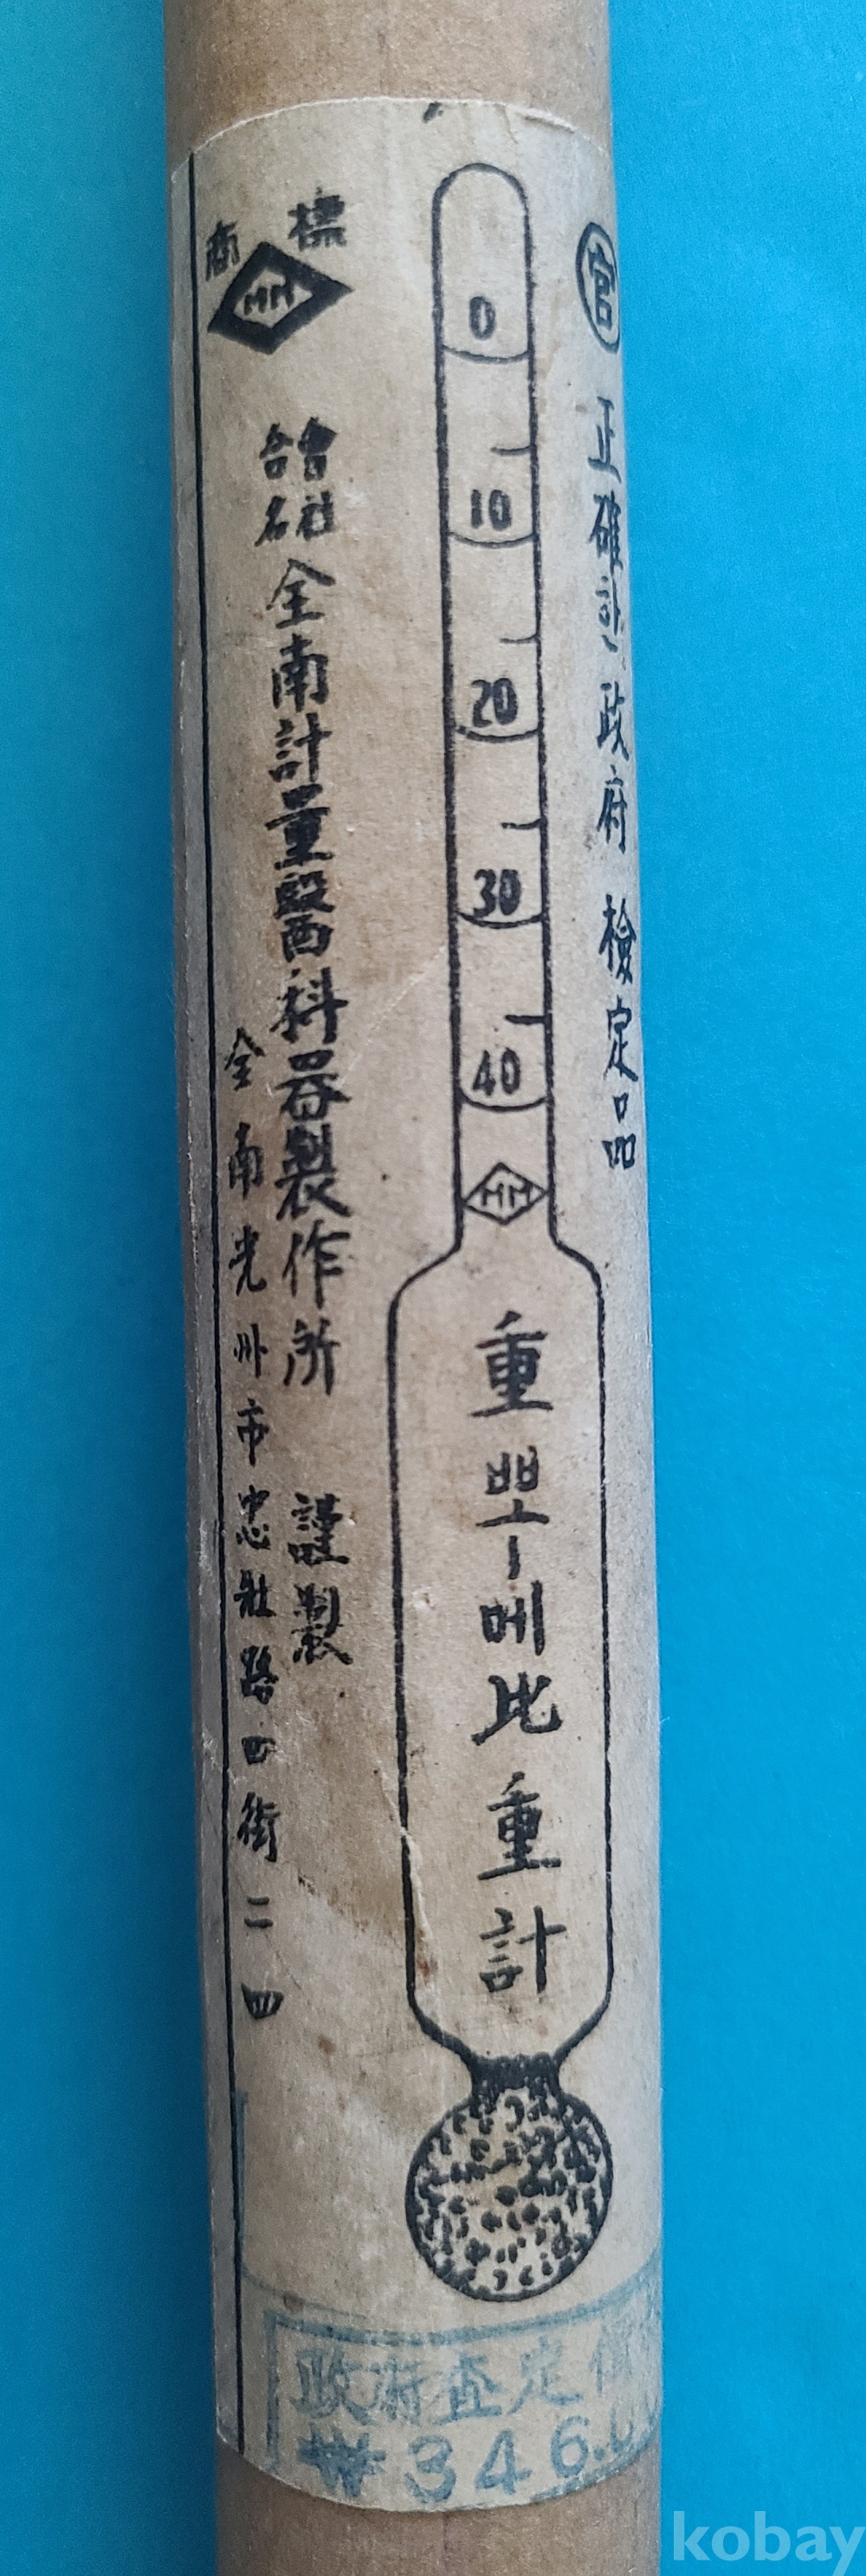 ㊢ 正確한 政府 檢定品
0
10
20
30
40
HM
重뽀ー메比重計
商標
HM
合名會社 全南計量醫科器製作所 謹製
全南光州市忠壯路四街二四
政府査定價
₩346.
kobay